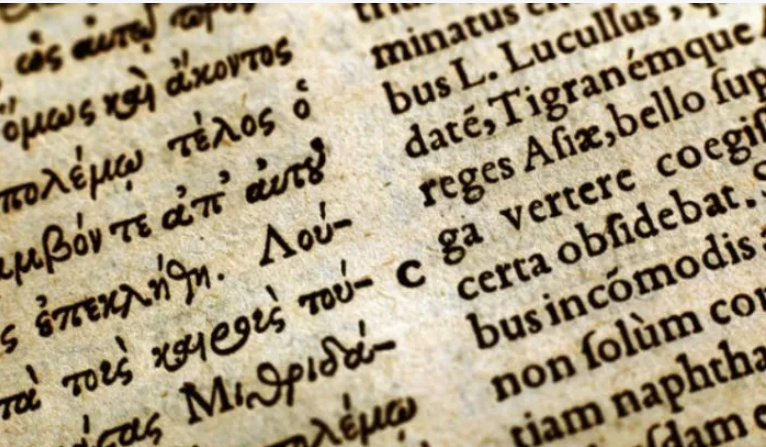 ὡς αὐτῷ
ὅμως καὶ ἄκοντος
πολέμῳ τέλος ὁ
τε ἀπ' αὐτοῦ
ς ἐπεκλήθη. Λού-
τὰ τοὺς καιροὺς τού-
Μιθριδά-
πολέμῳ
minatus
bus L. Lucullus,
daté, Tigranémque
reges Asiæ, bello ſup
c ga vertere coegiſ
certa obſidebat.
bus incómodis
non ſolùm con
tiam naphtha